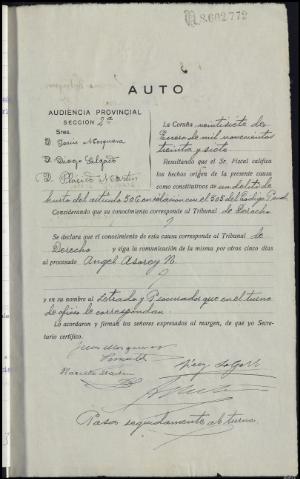 N.8.602.772
AUTO
AUDIENCIA PROVINCIAL
SECCION 2ª
Sres.
D. Jesús Mosquera
D. Diego Salgado
D. Plácido Martín
La Coruña veintisiete de
Enero de mil novecientos
treinta y siete
Resultando que el Sr. Fiscal califica
los hechos origen de la presente causa
como constitutivos de un delito de
hurto del artículo 506 en relación con el 505 del Código Penal
Considerando que su conocimiento corresponde al Tribunal
de Derecho
Se declara que el conocimiento de esta causa corresponde al Tribunal de
Derecho y siga la comunicación de la misma por otros cinco días
al procesado Angel Asorey N.
y en su nombre al Letrado y Procurador que en el turno
de oficio le correspondan.
Lo acordaron y firman los señores expresados al margen, de que yo Secretario
certifico.
Diego Salgado
Pasos seguidamente al turno.